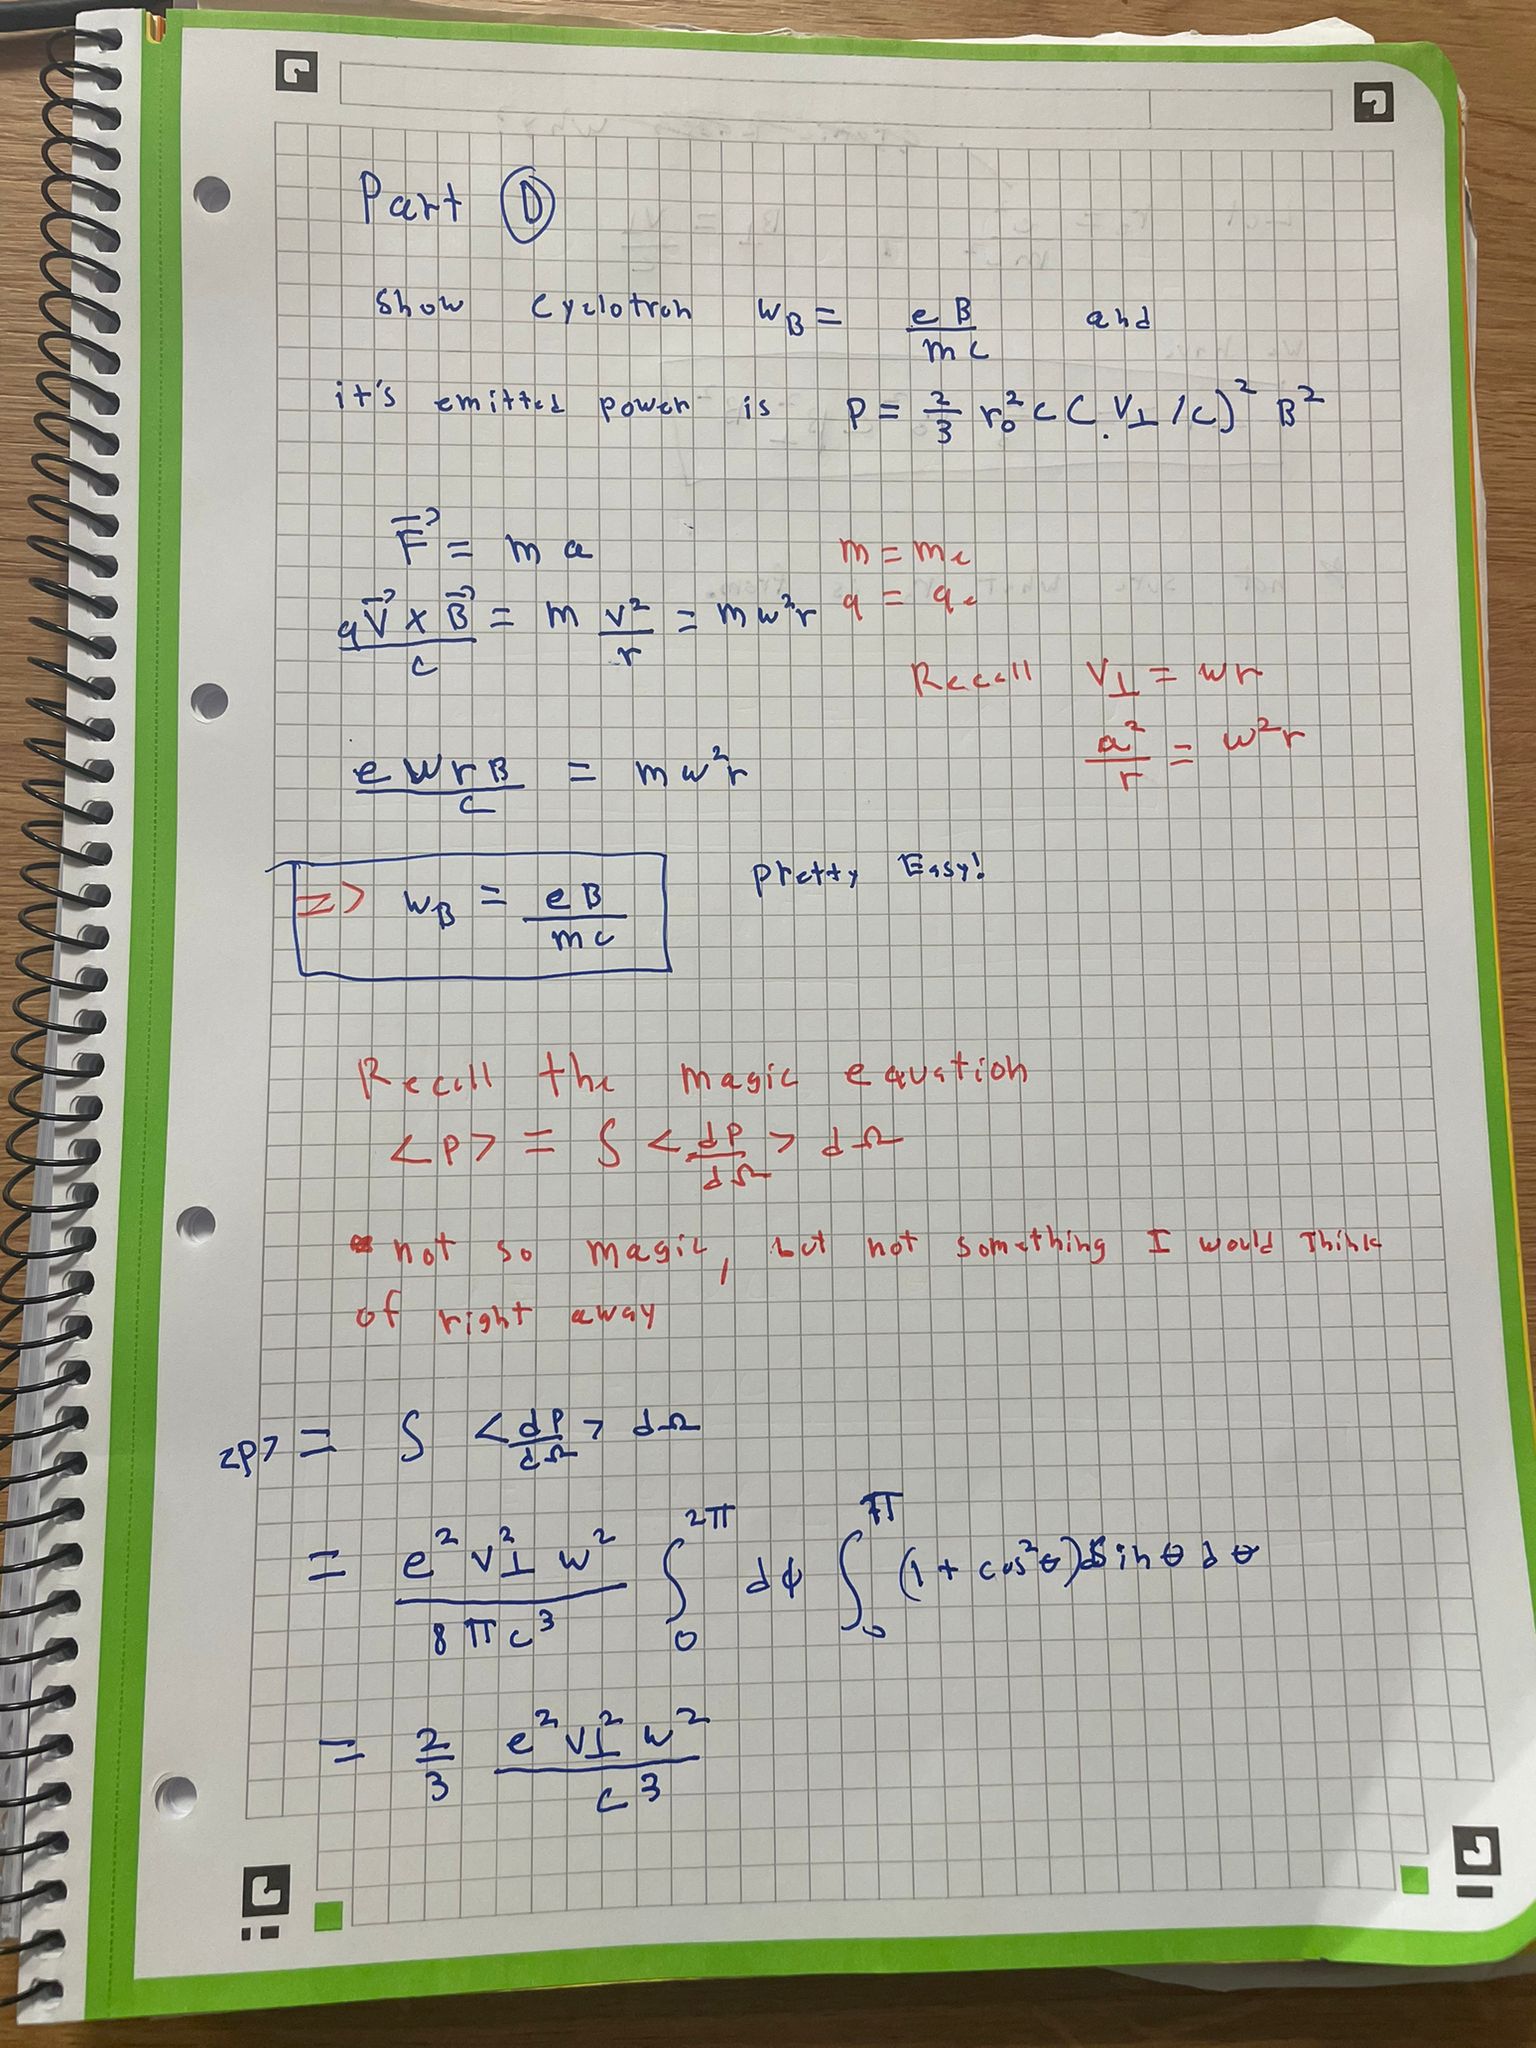 Part Ⓓ
Show Cyclotron ω_B = eB/mc and
it's emitted power is P = 2/3 r₀² c (V⊥/c)² B²
F⃗ = ma
m = me
qV⃗ × B⃗/c = m v²/r = mω²r
q = qe
Recall V⊥ = ωr
a²/r = ω²r
eωrB/c = mω²r
=> ω_B = eB/mc
Pretty Easy!
Recall the magic equation
<P> = ∫ <dP/dΩ> dΩ
not so magic, but not something I would think
of right away
<P> = ∫ <dP/dΩ> dΩ
= e² V⊥² ω²/8πc³ ∫₀^2π dϕ ∫₀^π (1 + cos²θ) sinθ dθ
= 2/3 e² V⊥² ω²/c³